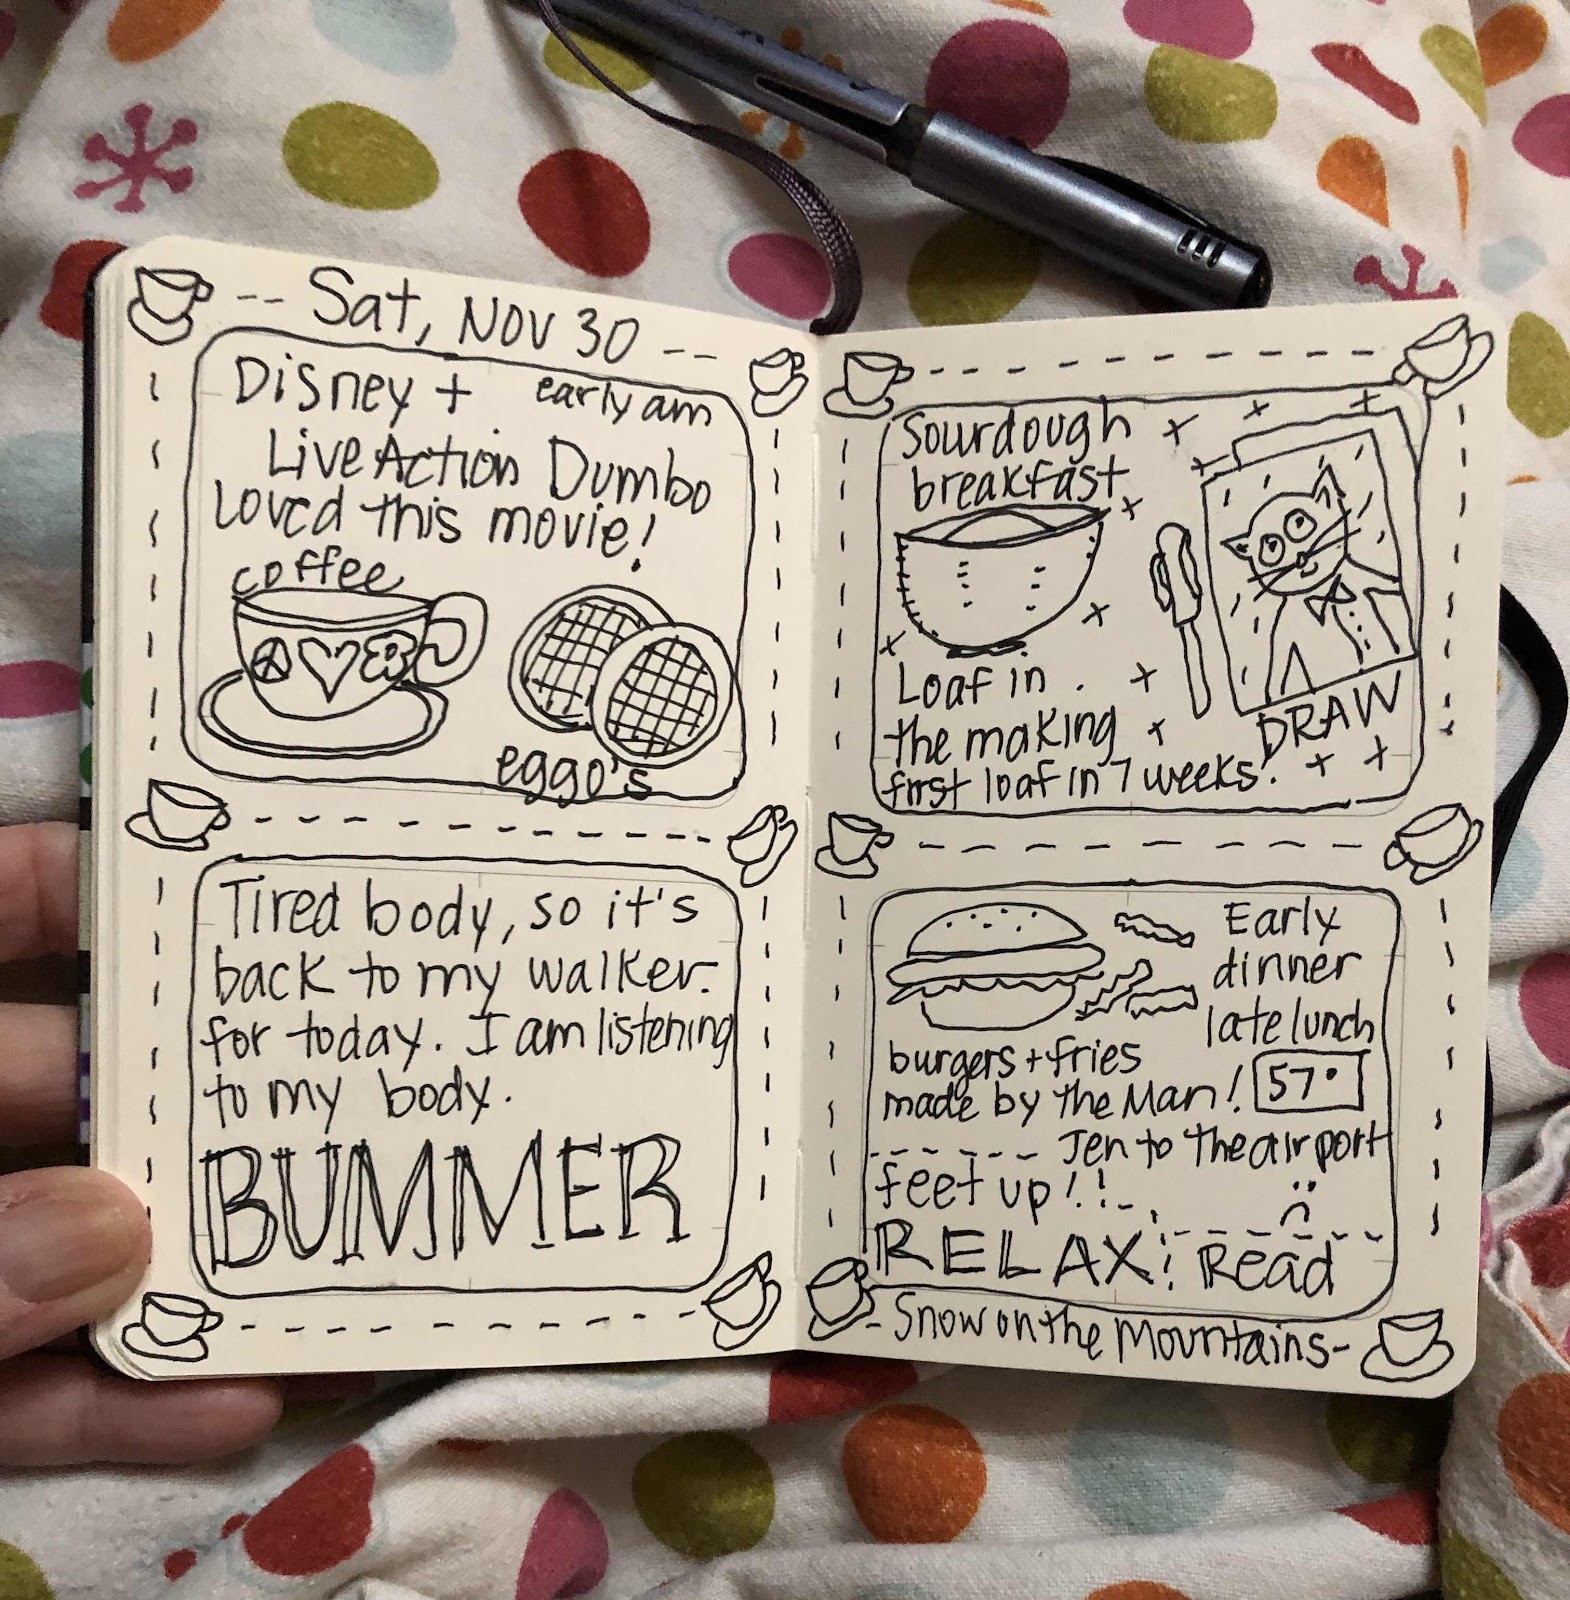 -- Sat, Nov 30 --
Disney + early am
Live Action Dumbo
Loved this movie!
coffee
eggo's
Tired body, so it's
back to my walker.
for today. I am listening
to my body.
BUMMER
Sourdough
breakfast
Loaf in
the making
first loaf in 7 weeks!
DRAW
Early
dinner
late lunch
burgers + fries
made by the Man! 57°
Jen to the airport
feet up!!
:(
RELAX! Read
- Snow on the Mountains -